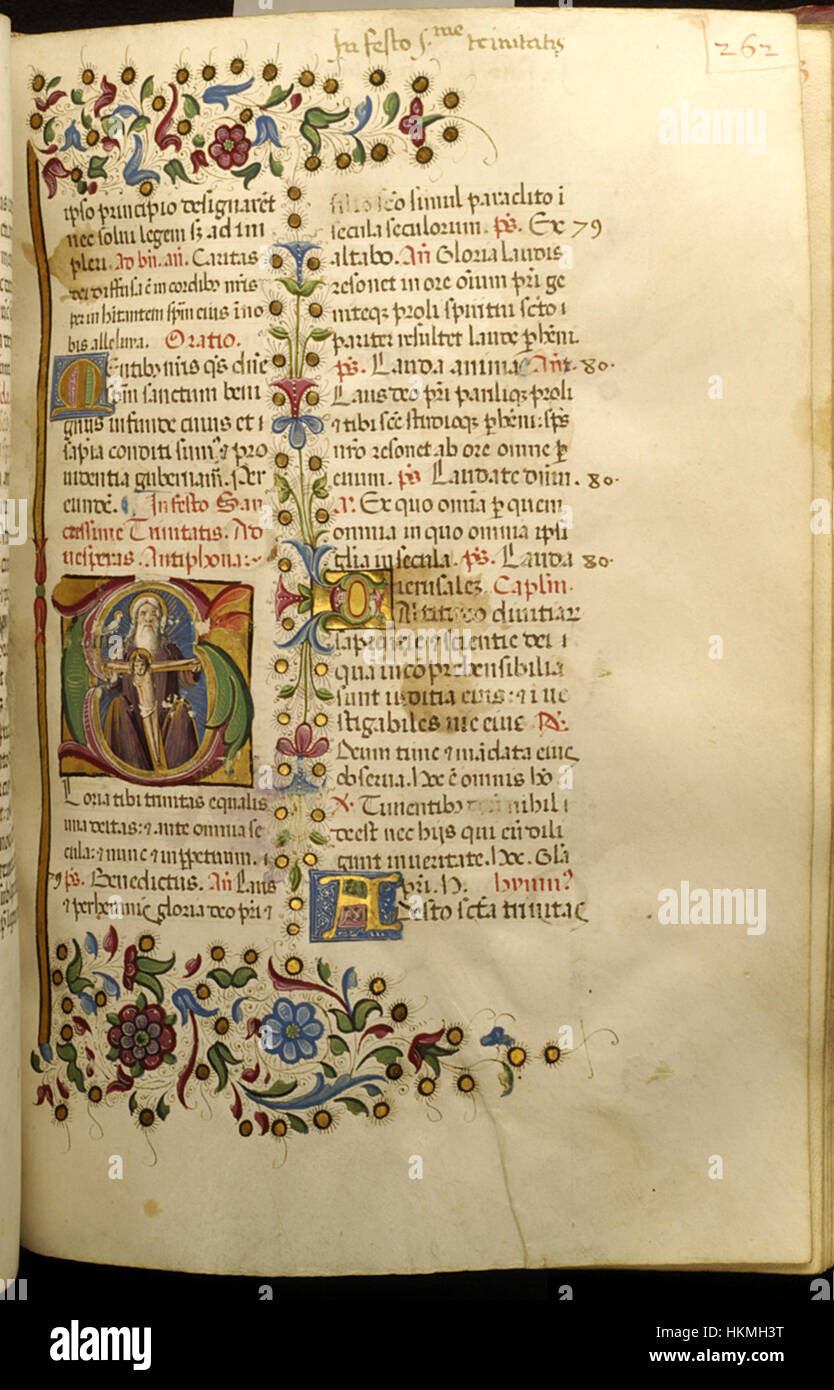 In festo s.me trinitatis
262
ipso principio designaret
nec solui legem sz ad im
pleri. Ad bn. an. Caritas
dei diffusa e in cordibo nris
per in hitantem spm eius i no
bis alleluia. Oratio.
Mentibo nris qs dne
spm sanctum beni
gnus infunde cuius et i
sapia conditi sum et pro
uidentia gubernam. Per
eiusde. In festo San
ctissime Trinitatis. Ad
uesperas. Antiphona:
Gloria tibi trinitas equalis
una deitas: et ante omnia se
cula: et nunc et in ppetuum. i
79 ps. Benedictus. An Laus
et perhennis gloria deo pri et
filio sco simul paraclito i
secula seculorum. ps. Ex 79
altabo. An Gloria laudis
resonet in ore oium pri ge
niteqz proli spiritui scto i
pariter resultet laude pheni
ps. Lauda anima Ant. 80.
Laus deo pri pariliqz proli
et tibi sce studioqz pheni: sps
nro resonet ab ore omne p
euum. ps Laudate dnm. 80.
A. Ex quo omia p quem
omnia in quo omnia ipsi
glia in secula. ps. Lauda 80
ierusalez. Caplm.
O Altitudo diuitiar
sapientie et scientie dei i
qua incoprehensibilia
sunt iuditia eius: et i ue
stigabiles uie eius R.
Deum time et madata eius
obserua. Hoc e omnis ho
V. Timentibo nihil i
deest nec hijs qui eu dili
gunt in ueritate. Hoc. Gla
pri. H. hymn9
Adesto scta trinitas
alamy
alamy
alamy
Image ID: HKMH3T
www.alamy.com